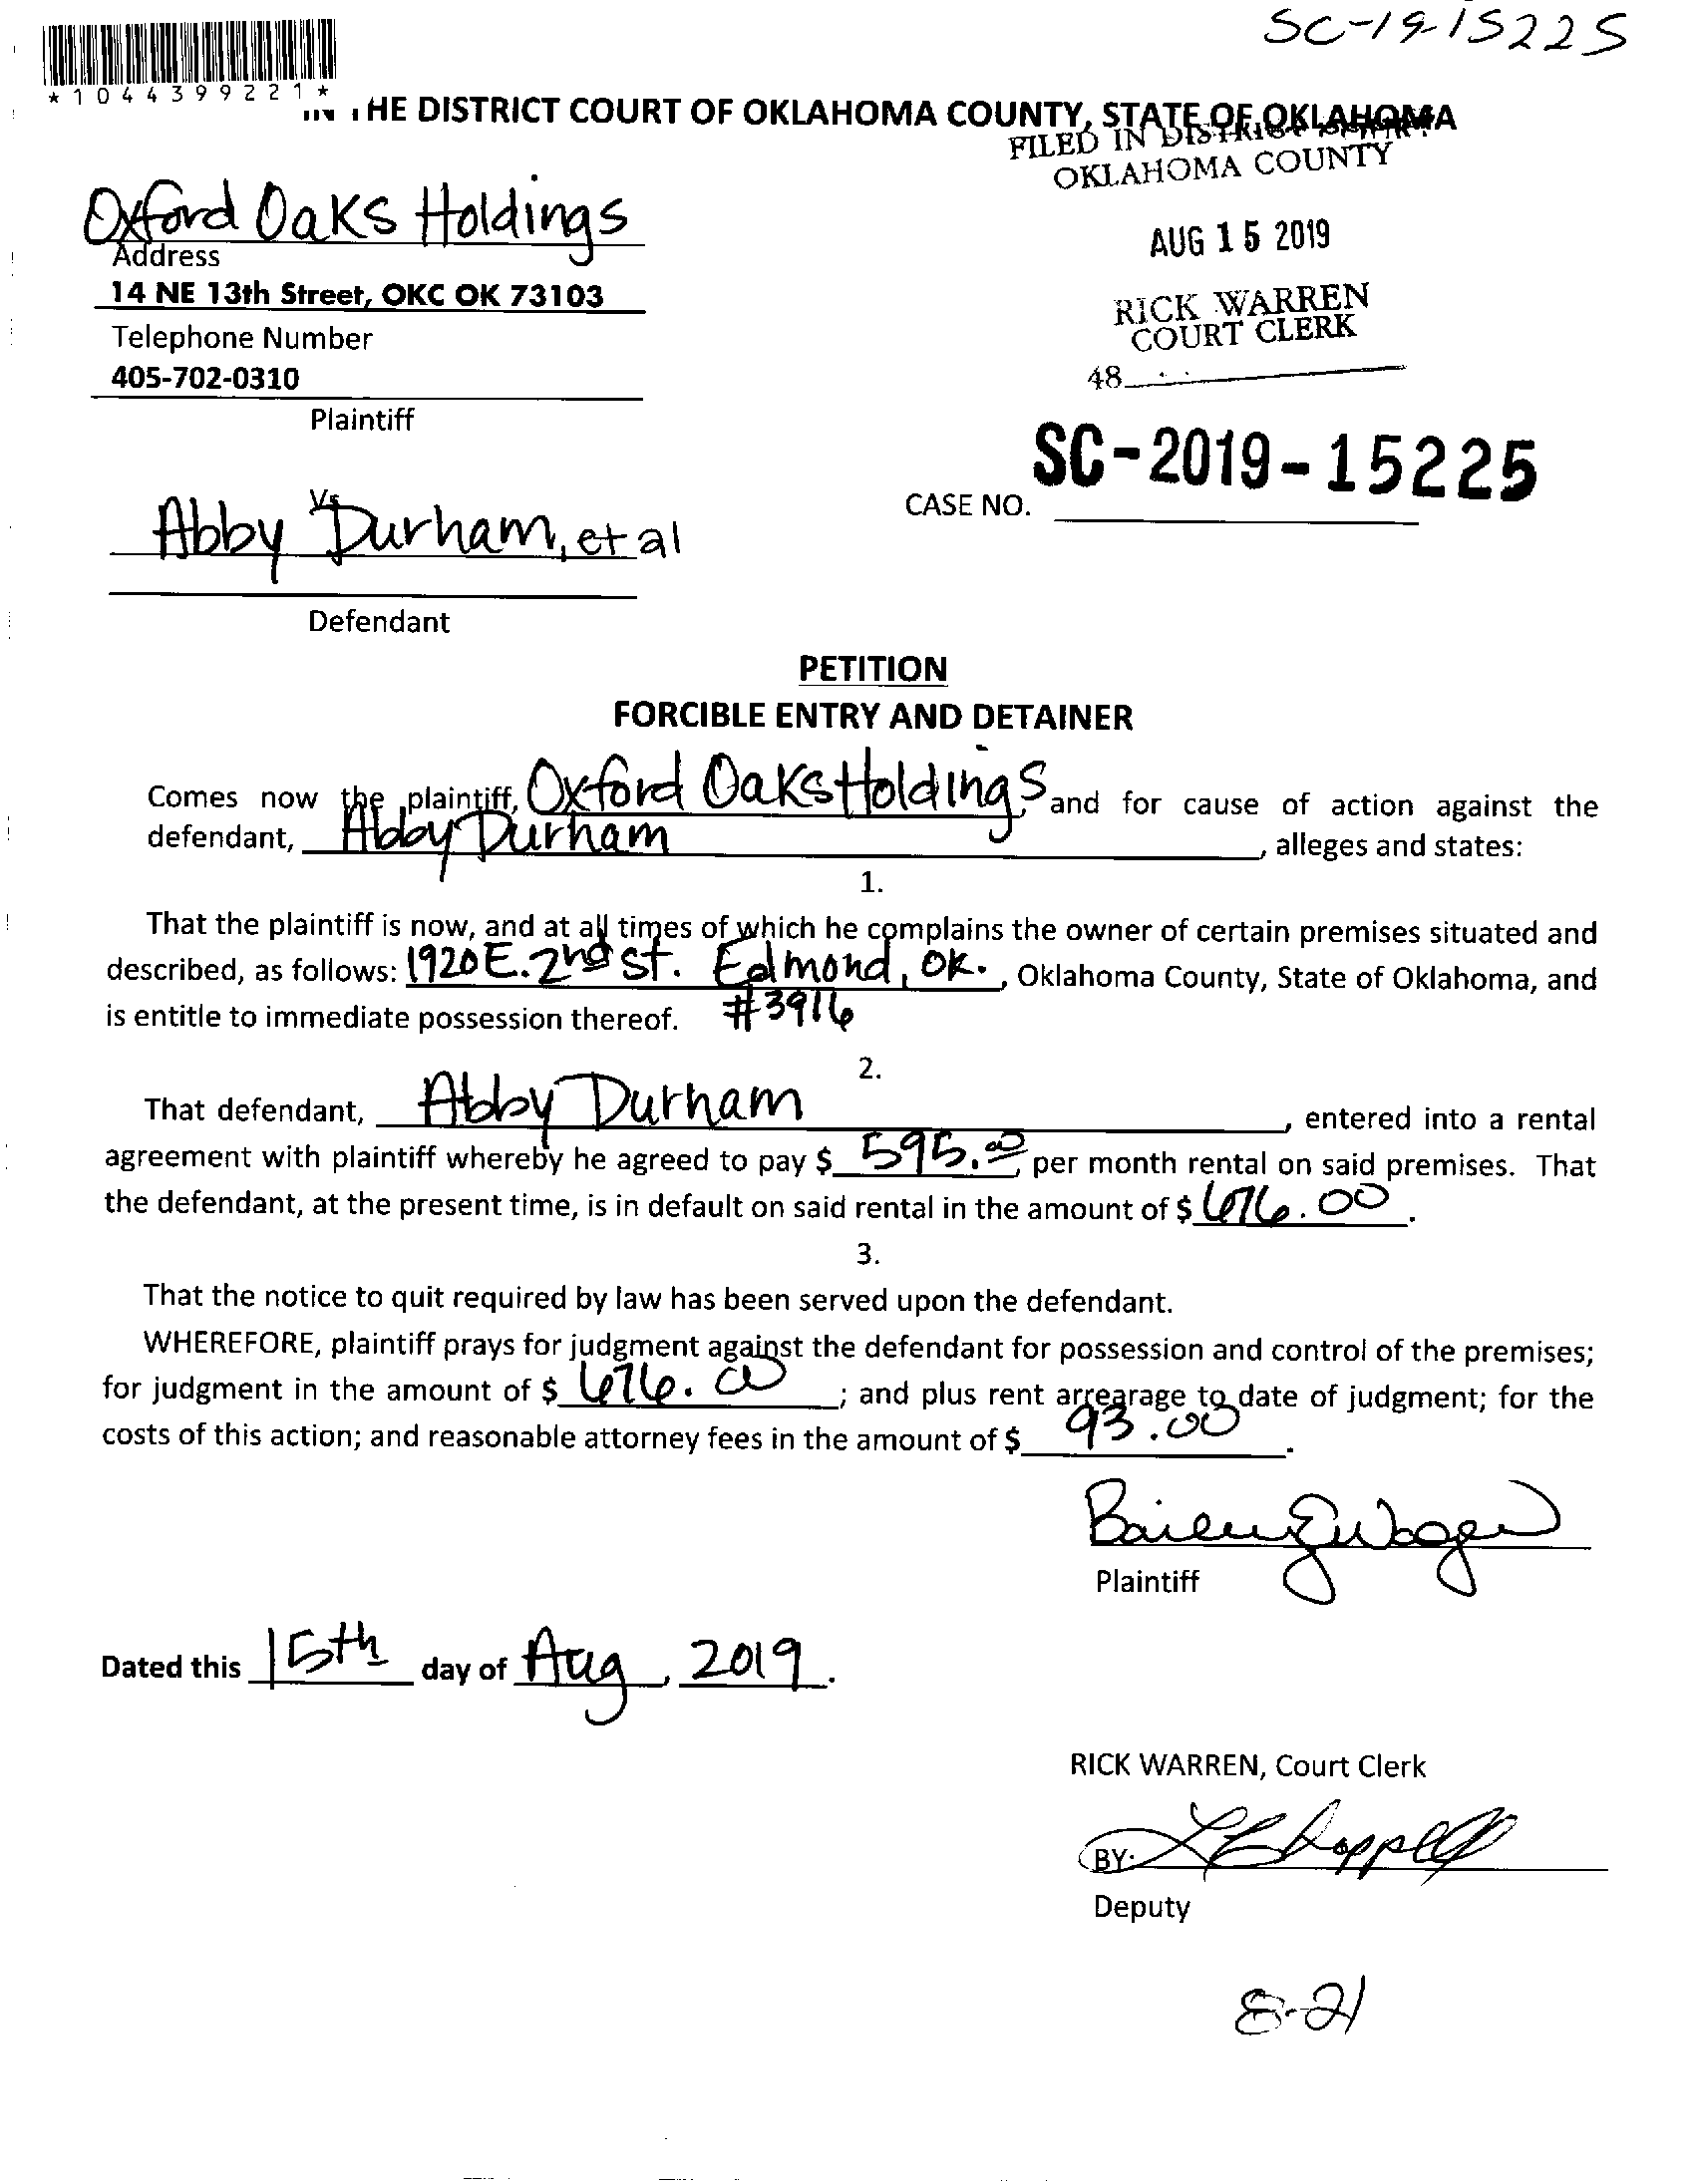 SC-19-15225
*1044399221*
THE DISTRICT COURT OF OKLAHOMA COUNTY, STATE OF OKLAHOMA
FILED IN DISTRICT COURT
OKLAHOMA COUNTY
Oxford Oaks Holdings
AUG 15 2019
Address
14 NE 13th Street, OKC OK 73103
RICK WARREN
COURT CLERK
Telephone Number
405-702-0310
48
Plaintiff
SC-2019-15225
CASE NO.
Vs
Abby Durham, et al
Defendant
PETITION
FORCIBLE ENTRY AND DETAINER
Comes now the plaintiff, Oxford Oaks Holdings, and for cause of action against the
defendant, Abby Durham, alleges and states:
1.
That the plaintiff is now, and at all times of which he complains the owner of certain premises situated and
described, as follows: 1920 E. 2nd St. Edmond, OK., Oklahoma County, State of Oklahoma, and
is entitle to immediate possession thereof. #3916
2.
That defendant, Abby Durham, entered into a rental
agreement with plaintiff whereby he agreed to pay $ 595.00 per month rental on said premises. That
the defendant, at the present time, is in default on said rental in the amount of $ 676.00.
3.
That the notice to quit required by law has been served upon the defendant.
WHEREFORE, plaintiff prays for judgment against the defendant for possession and control of the premises;
for judgment in the amount of $ 676.00; and plus rent arrearage to date of judgment; for the
costs of this action; and reasonable attorney fees in the amount of $ 93.00.
Plaintiff
Dated this 15th day of Aug, 2019.
RICK WARREN, Court Clerk
BY:
Deputy
8-21